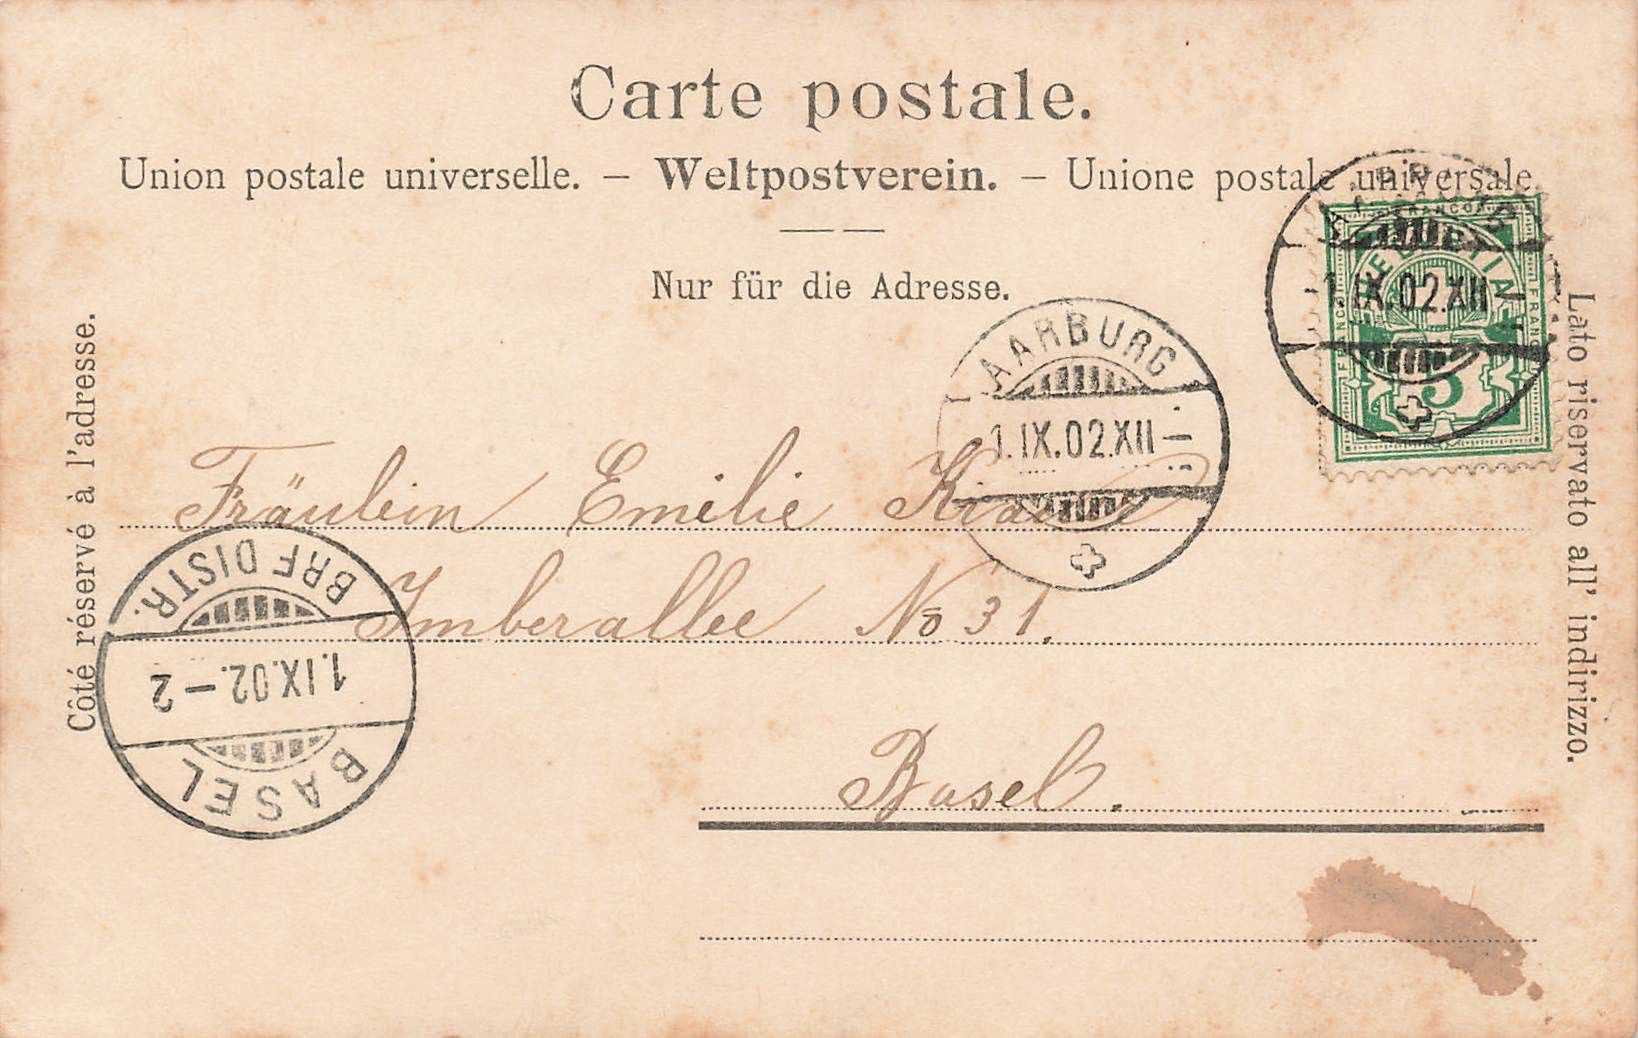 Carte postale.
Union postale universelle. – Weltpostverein. – Unione postale universale.
Nur für die Adresse.
Côté réservé à l'adresse.
Lato riservato all' indirizzo.
AARBURG
1.IX.02.XII
FRANCO
HELVETIA
FRANCO
FRANCO
5
AARBURG
1.IX.02.XII–
Fräulein Emilie
Imberallee No 31.
Basel.
BRF DISTR.
1.IX.02.–2
BASEL